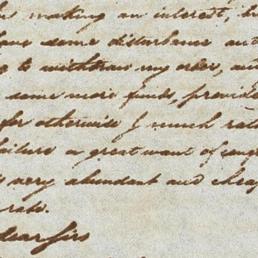 making an interest,
some disturbance
to withdraw my order, and
some more funds, provided
for otherwise I much rather
a great want of
very abundant and cheap
rate.
dear sirs